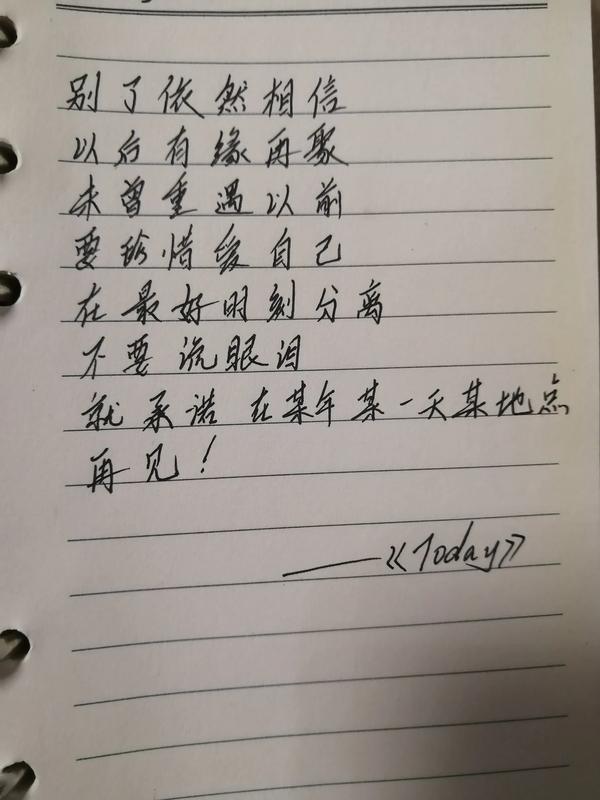 别了依然相信
以后有缘再聚
未曾重遇以前
要珍惜爱自己
在最好时刻分离
不要流眼泪
就承诺在某年某一天某地点
再见！
——《Today》